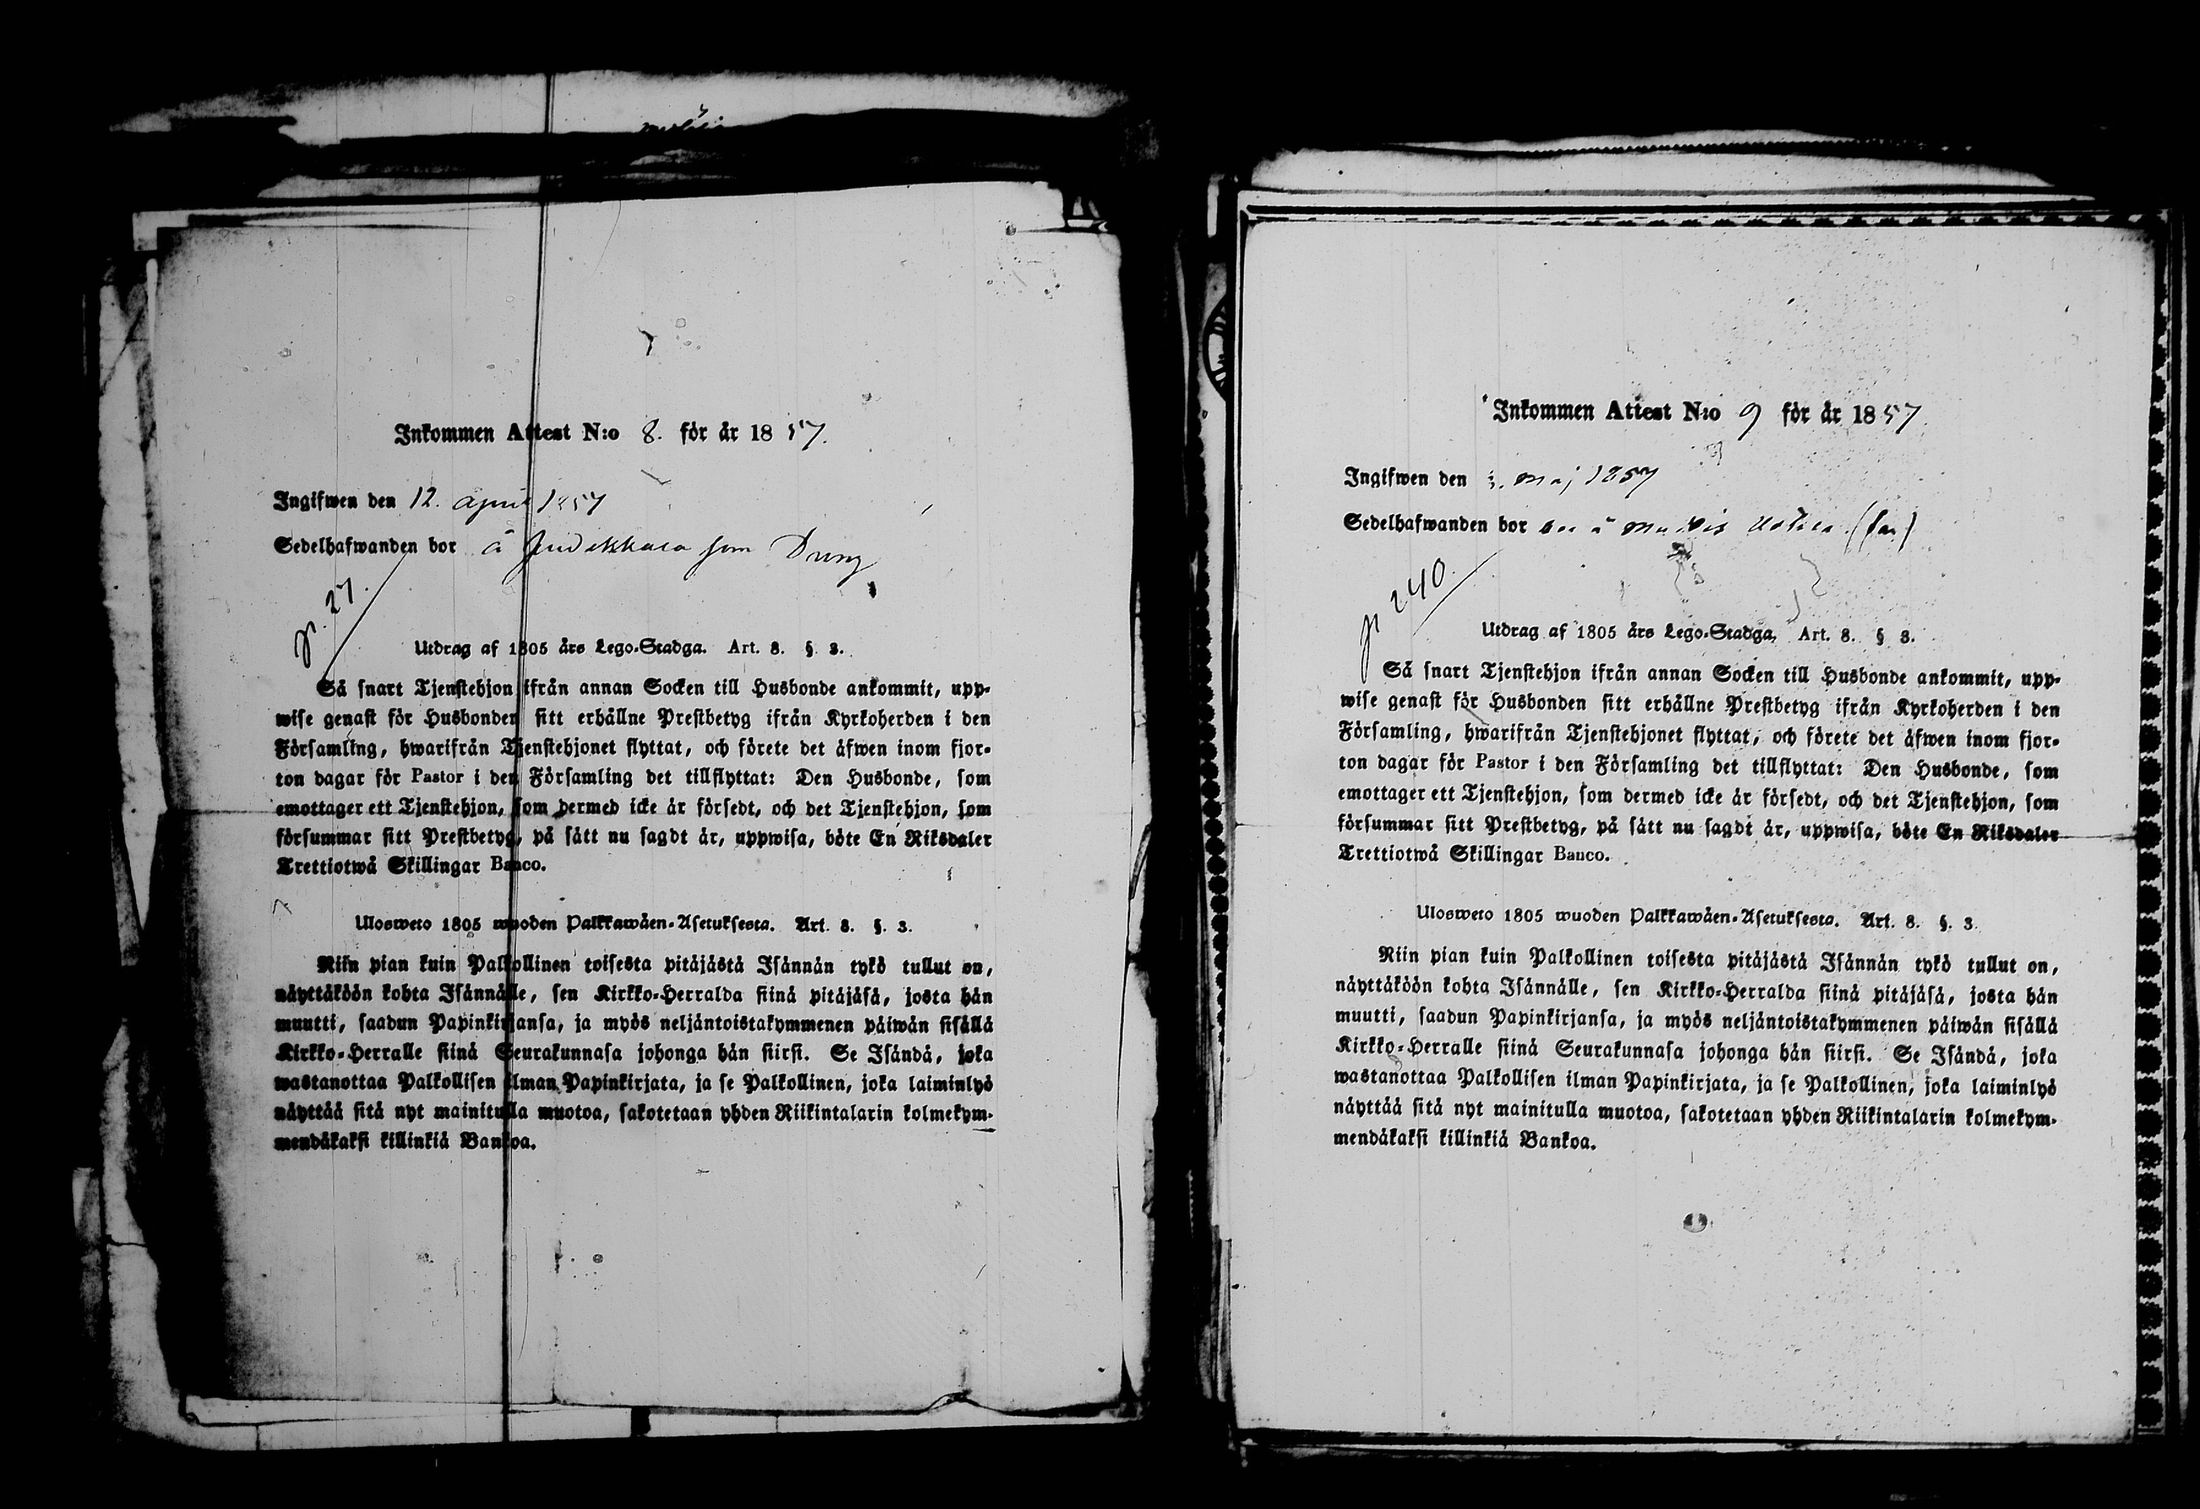 Inkommen Attest N:o 8. för år 1857.
Ingifwen den 12. april 1857
Sedelhafwanden bor å som Dreng
p. 27.
Utdrag af 1805 års Lego-Stadga. Art. 8. § 3.
Så snart Tjenstehjon ifrån annan Socken till Husbonde ankommit, upp-
wise genast för Husbonden sitt erhållne Prestbetyg ifrån Kyrkoherden i den
Församling, hwarifrån Tjenstehjonet flyttat, och förete det äfwen inom fjor-
ton dagar för Pastor i den Församling det tillflyttat: Den Husbonde, som
emottager ett Tjenstehjon, som dermed icke är försedt, och det Tjenstehjon, som
försummar sitt Prestbetyg, på sätt nu sagdt är, uppwisa, böte En Riksdaler
Trettiotwå Skillingar Banco.
Ulosweto 1805 wuoden Palkkawäen-Asetuksesta. Art. 8. §. 3.
Niin pian kuin Palkollinen toisesta pitäjästä Isännän tykö tullut on,
näyttäköön kohta Isännälle, sen Kirkko-Herralda siinä pitäjäsä, josta hän
muutti, saadun Papinkirjansa, ja myös neljäntoistakymmenen päiwän sisällä
Kirkko-Herralle siinä Seurakunnasa johonga hän siirsi. Se Isändä, joka
wastanottaa Palkollisen ilman Papinkirjata, ja se Palkollinen, joka laiminlyö
näyttää sitä nyt mainitulla muotoa, sakotetaan yhden Riikintalarin kolmekym-
mendäkaksi killinkiä Bankoa.
Inkommen Attest N:o 9 för år 1857
Ingifwen den 3. maj 1857
Sedelhafwanden bor
p. 240.
Utdrag af 1805 års Lego-Stadga. Art. 8. § 3.
Så snart Tjenstehjon ifrån annan Socken till Husbonde ankommit, upp-
wise genast för Husbonden sitt erhållne Prestbetyg ifrån Kyrkoherden i den
Församling, hwarifrån Tjenstehjonet flyttat, och förete det äfwen inom fjor-
ton dagar för Pastor i den Församling det tillflyttat: Den Husbonde, som
emottager ett Tjenstehjon, som dermed icke är försedt, och det Tjenstehjon, som
försummar sitt Prestbetyg, på sätt nu sagdt är, uppwisa, böte En Riksdaler
Trettiotwå Skillingar Banco.
Ulosweto 1805 wuoden Palkkawäen-Asetuksesta. Art. 8. §. 3.
Niin pian kuin Palkollinen toisesta pitäjästä Isännän tykö tullut on,
näyttäköön kohta Isännälle, sen Kirkko-Herralda siinä pitäjäsä, josta hän
muutti, saadun Papinkirjansa, ja myös neljäntoistakymmenen päiwän sisällä
Kirkko-Herralle siinä Seurakunnasa johonga hän siirsi. Se Isändä, joka
wastanottaa Palkollisen ilman Papinkirjata, ja se Palkollinen, joka laiminlyö
näyttää sitä nyt mainitulla muotoa, sakotetaan yhden Riikintalarin kolmekym-
mendäkaksi killinkiä Bankoa.